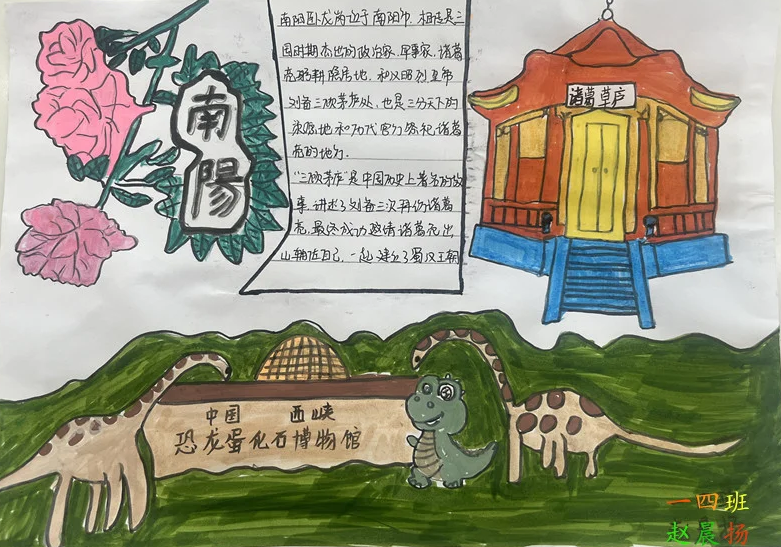 南陽
南阳卧龙岗位于南阳市，相传是三
国时期杰出的政治家、军事家，诸葛
亮躬耕隐居地，和汉昭烈皇帝
刘备三顾茅庐处，也是三分天下的
策源地和历代官方祭祀诸葛
亮的地方.
"三顾茅庐"是中国历史上著名的故
事，讲述了刘备三次拜访诸葛
亮，最终成功邀请诸葛亮出
山辅佐自己，一起建立了蜀汉王朝
诸葛草庐
中国 西峡
恐龙蛋化石博物馆
一四班
赵晨扬